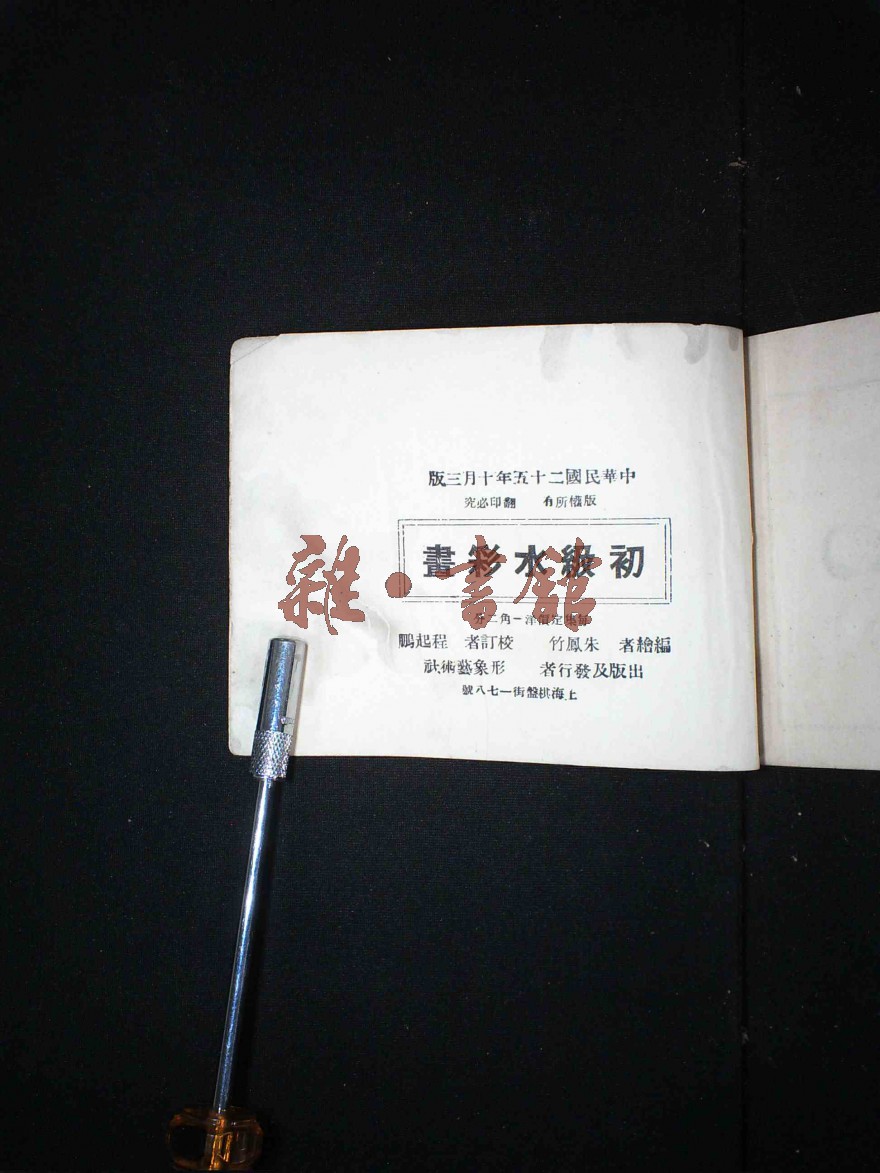 中華民國二十五年十月三版
版權所有 翻印必究
初級水彩畫
每册定價洋一角二分
編繪者 朱鳳竹 校訂者 程起鵬
出版及發行者 形象藝術社
上海棋盤街一七八號
雜·書館